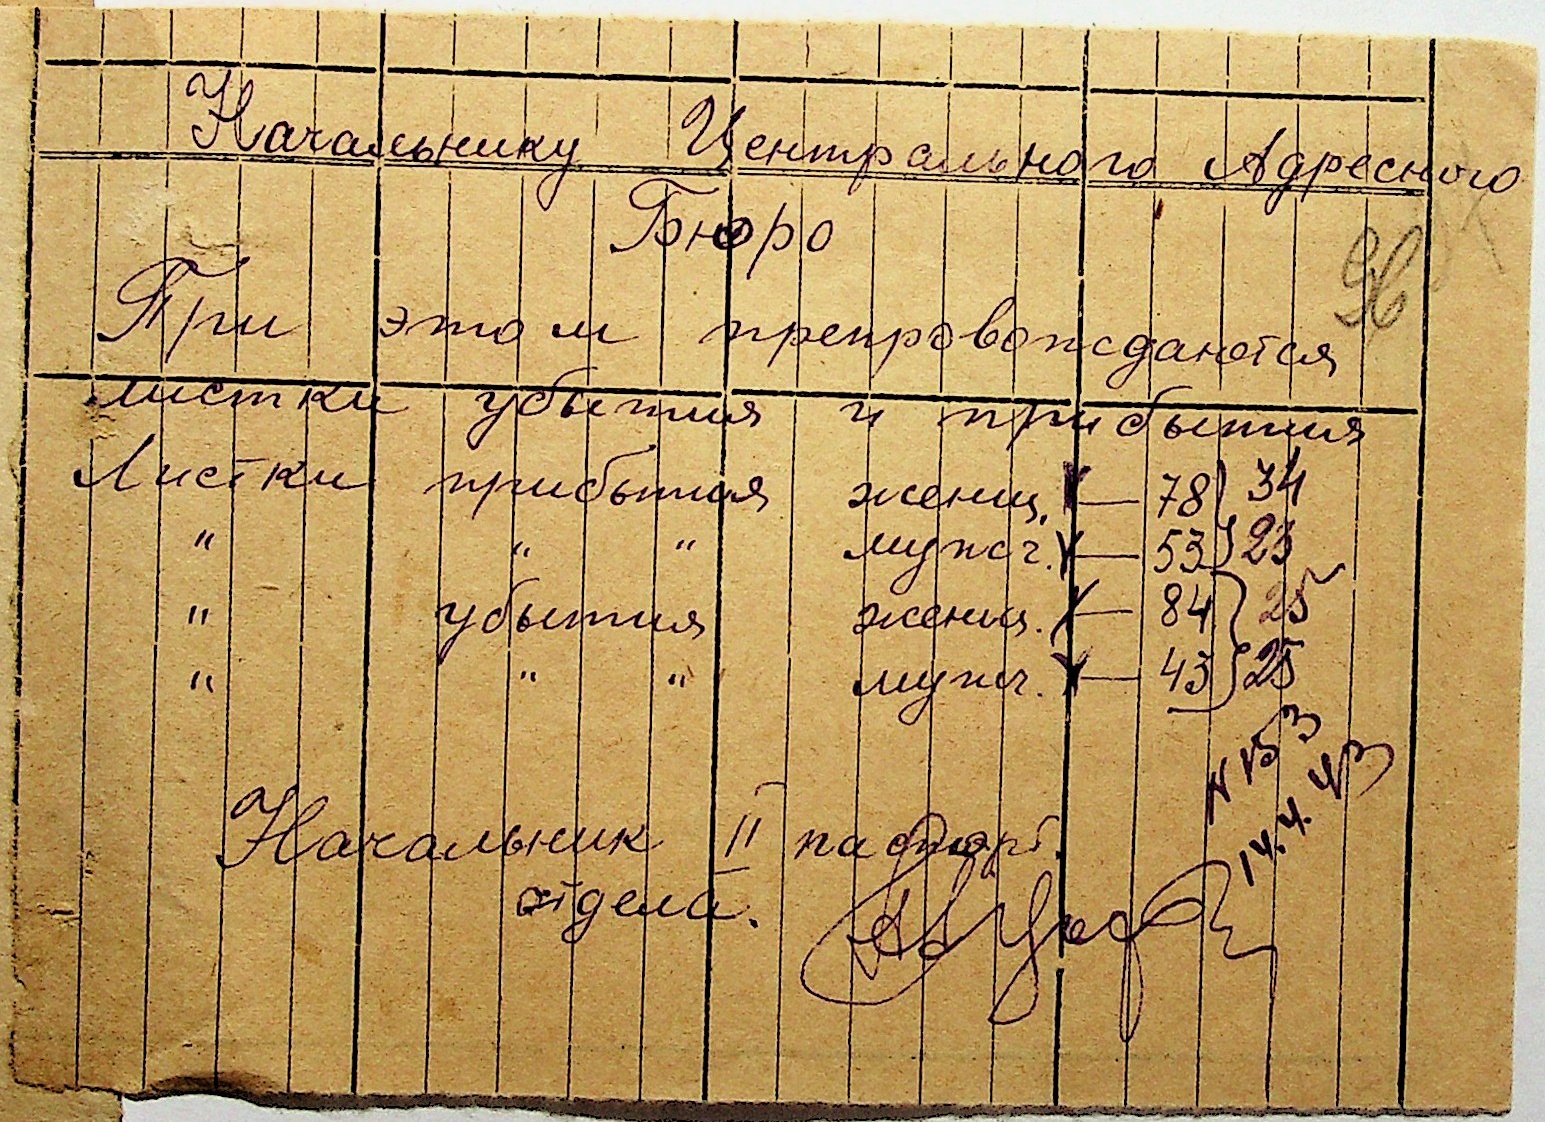 Начальнику Центрального Адресного
Бюро
При этом препровождаются
листки убытия и прибытия
Листки прибытия женщ. — 78 34
" " " мужч. — 53 23
" убытия женщ. — 84 25
" " " мужч. — 43 25
N 153
14.4.43
Начальник II паспорт.
отдела.